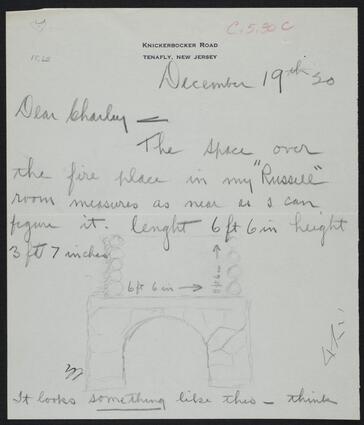 C.5.50 C
Knickerbocker Road
Tenafly, New Jersey
December 19th 20
Dear Charley —
The space over
the fire place in my "Russell"
room measures as near as I can
figure it. lenght 6 ft 6 in height
3 ft 7 inches
6 ft 6 in →
It looks something like this — think